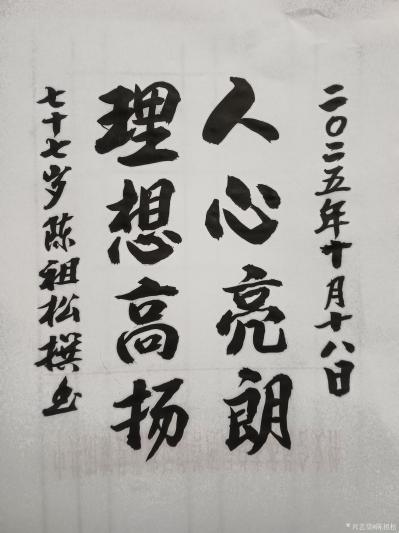 二〇二五年十月十八日
人心亮朗
理想高扬
七十七岁陈祖松撰书